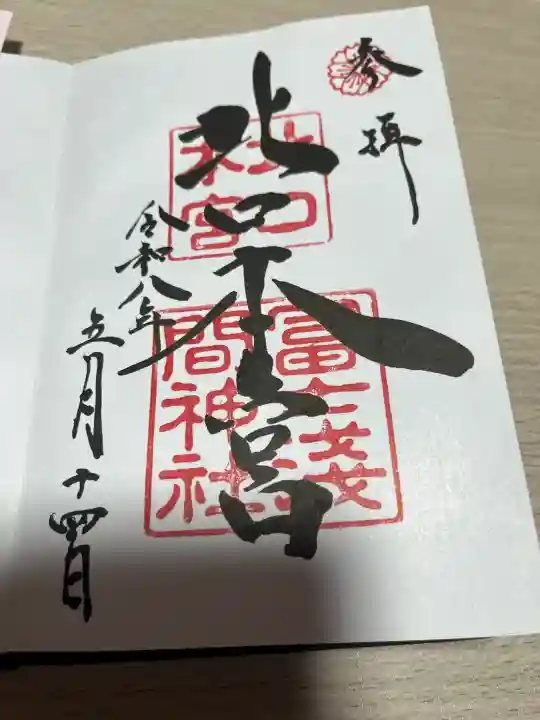 参拝
北口本宮
北口
本宮
冨士淺
間神社
令和八年
五月十四日